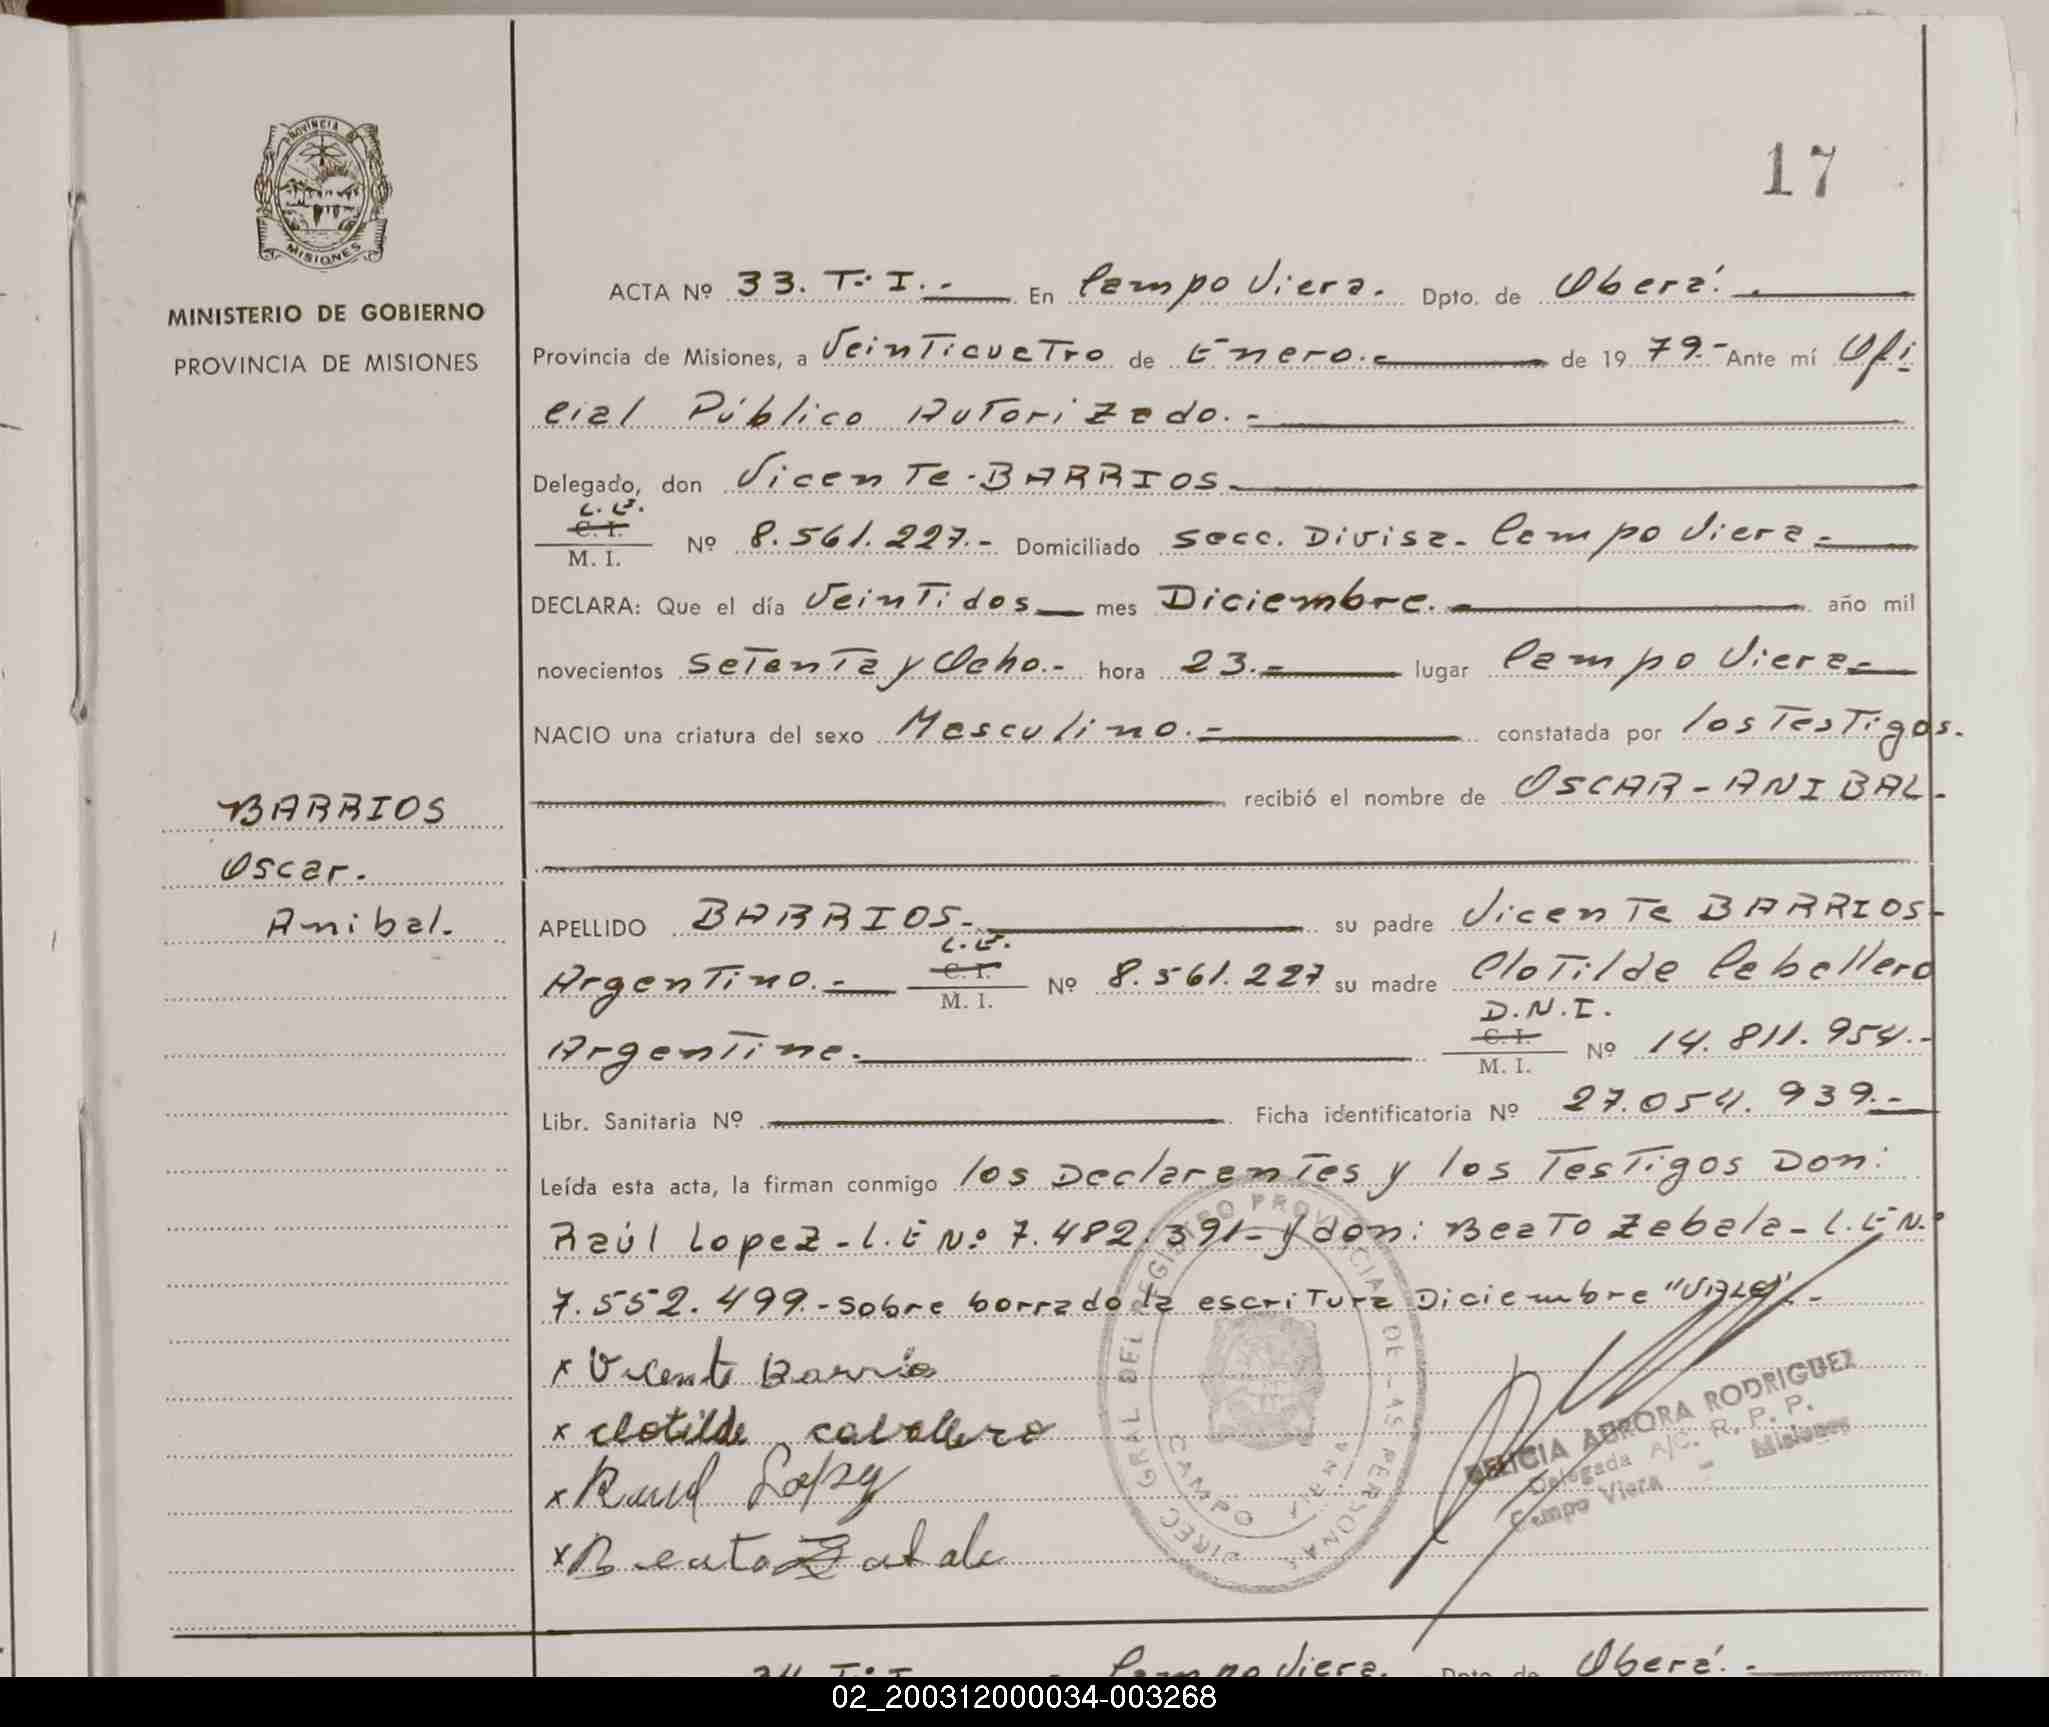 PROVINCIA DE
MISIONES
MINISTERIO DE GOBIERNO
PROVINCIA DE MISIONES
17
ACTA Nº 33. Tº I.- En Campo Viera. Dpto. de Oberá.
Provincia de Misiones, a Veinticuatro de Enero. de 19 79.- Ante mí Ofi
cial Público Autorizado.-
Delegado, don Vicente BARRIOS
L.E.
C. I.
M. I.
Nº 8.561.227.- Domiciliado Secc. Divisa- Campo Viera-
DECLARA: Que el día Veintidos mes Diciembre. año mil
novecientos Setenta y Ocho.- hora 23.- lugar Campo Viera-
NACIO una criatura del sexo Masculino.- constatada por los Testigos.
recibió el nombre de OSCAR-ANIBAL-
BARRIOS
Oscar.
Anibal.
APELLIDO BARRIOS- su padre Vicente BARRIOS-
L.E.
Argentino.- C. I. Nº 8.561.227 su madre Clotilde Caballero
M. I.
D.N.I.
Argentina. C. I. Nº 14.811.954.-
M. I.
Libr. Sanitaria Nº Ficha identificatoria Nº 27.054.939.-
Leída esta acta, la firman conmigo los Declarantes y los Testigos Don:
Raúl Lopez-L.E Nº 7.482.391- y don: Beato Zabala-L.E Nº
7.552.499.- sobre borrado la escritura Diciembre "VALE".-
x Vicente Barrio
x clotilde caballero
x Raul Lopez
x Beato Zabala
DIREC GRAL DEL REGISTRO PROVINCIAL DE LAS PERSONAS
CAMPO VIERA
DELICIA AURORA RODRIGUEZ
Delegada A/C. R. P. P.
Campo Viera - Misiones
34 Tº I Campo Viera. Dpto. de Oberá.-
02_200312000034-003268